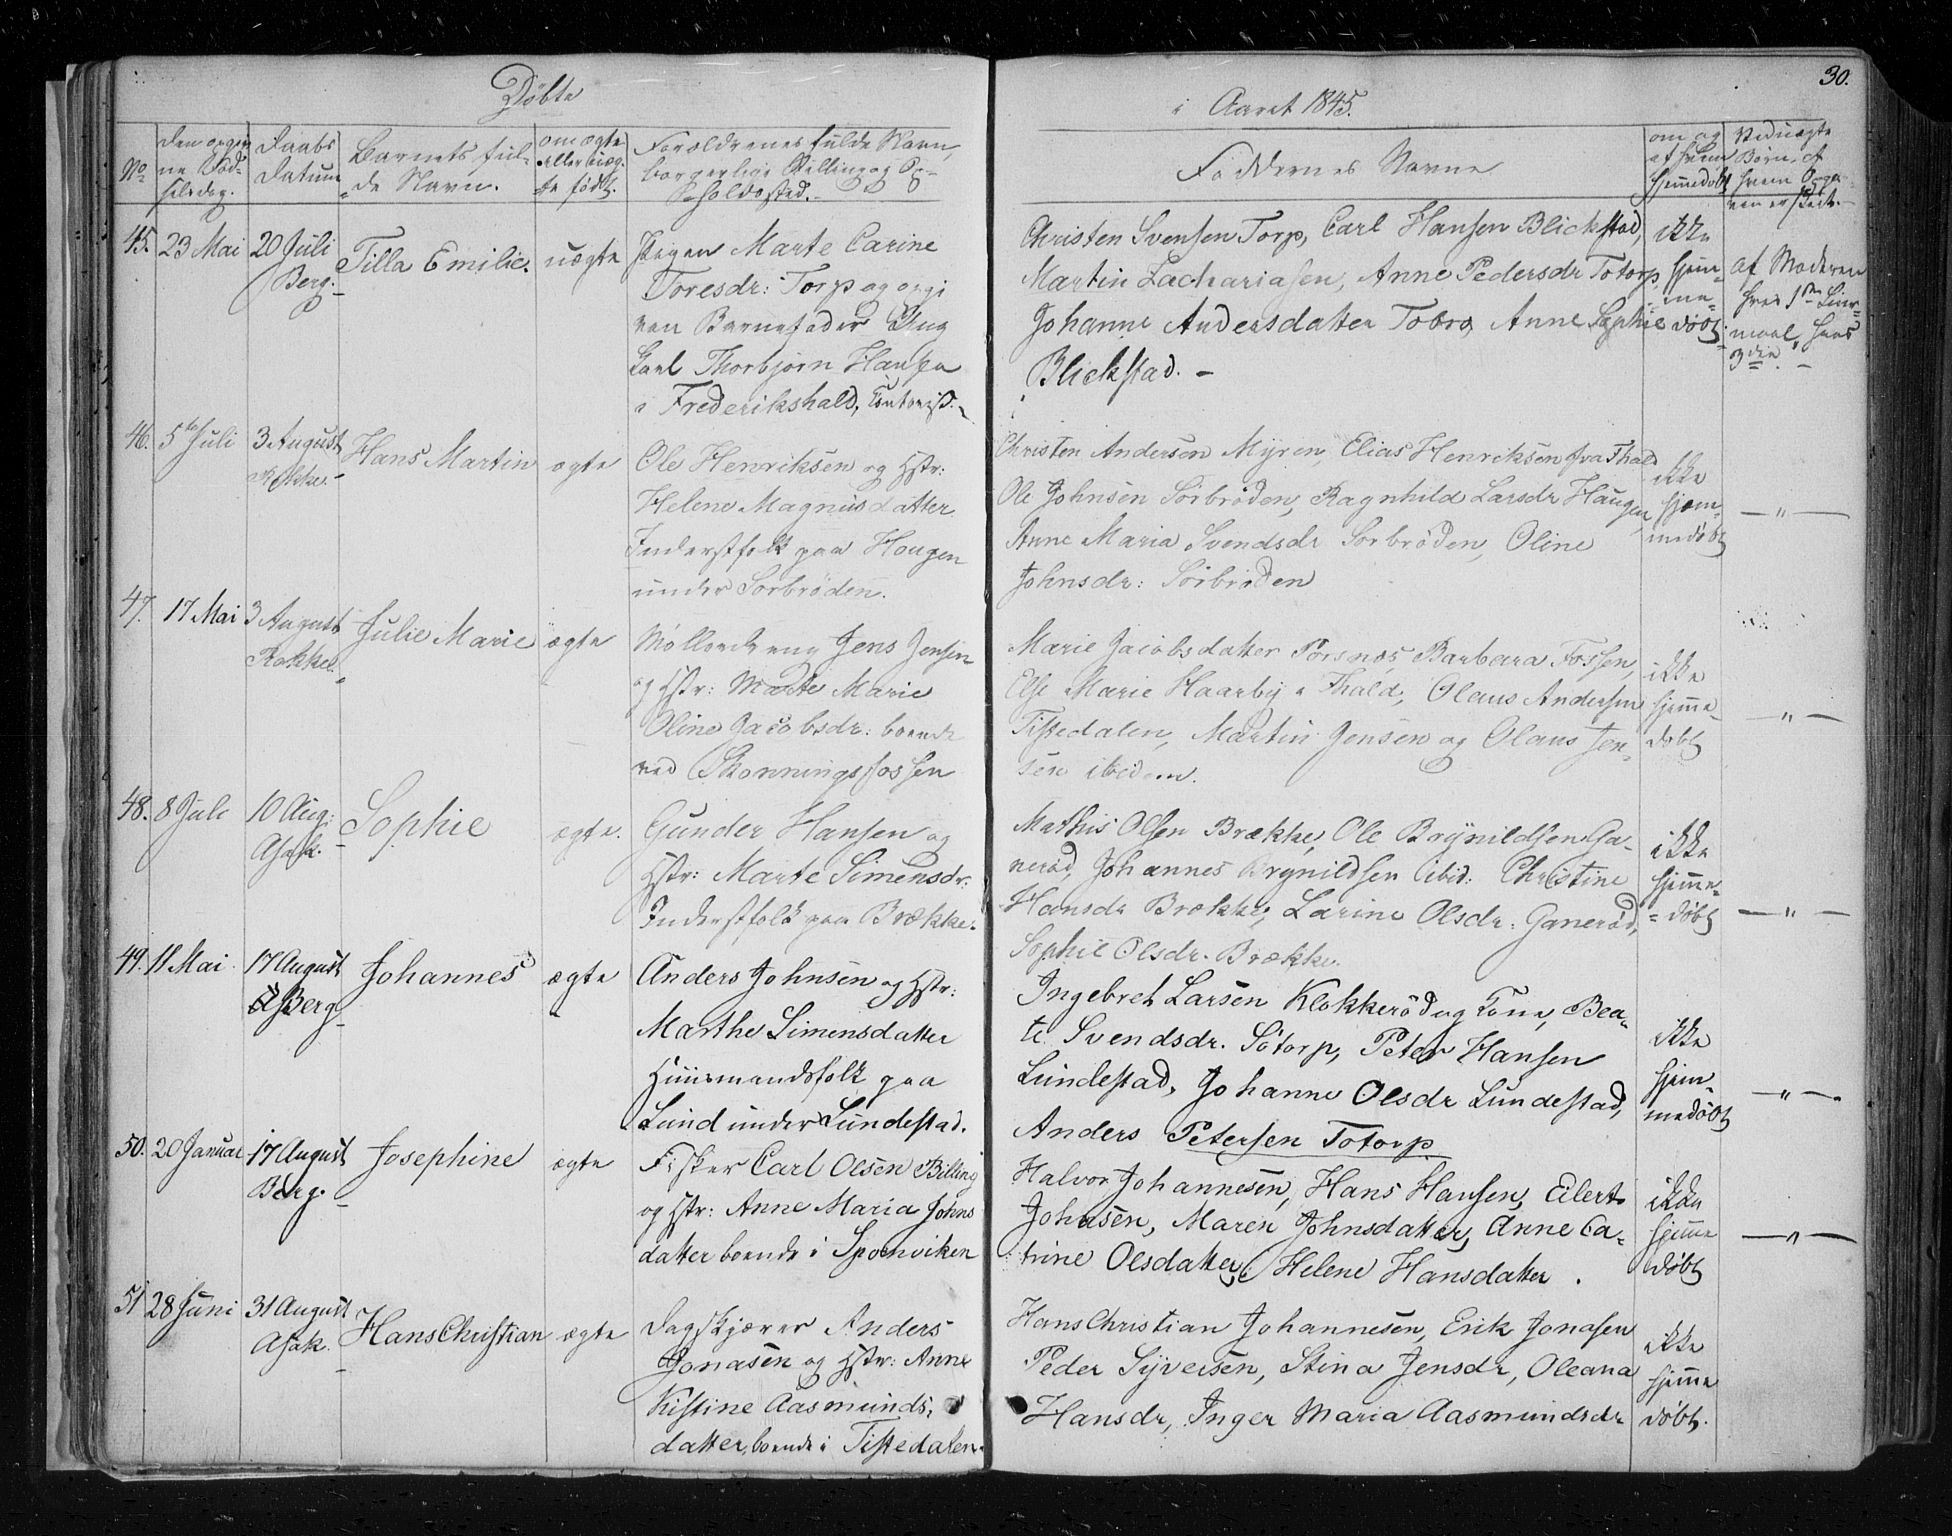 Døbte
i Aaret 1845.
30.
No
den opgiv-
ne Fød-
selsdag.
Daabs
Datum
Barnets ful-
de Navn.
om ægte
eller uæg-
te født.
Forældrenes fulde Navn,
borgerlige Stilling og Op-
holdssted.
Faddernes Navne
om og
af hvem
hjemmedøbt
Ved uægte
Børn, af
hvem Opga-
ven er skeet.
45. 23 Mai 20 Juli Tilla Emilie. uægte Pigen Marte Carine
Berg.
Toresdr: Torp og opgi
ven Barnefader Ung
karl Thorbjørn Hansen
i Frederikshald, Contorist.
Christen Svensen Torp, Carl Hansen Blickstad,
Martin Zachariasen, Anne Pedersdr Totorp
Johanne Andersdatter Torp, Anne Sophie
Blickstad.
ikke
hjem-
me-
døbt
af Moderen
hans 3die.
46. 5te Juli 3 August Hans Martin ægte Ole Henriksen og Hstr:
Rokke
Helene Magnusdatter
Inderstfolk paa Hougen
under Sørbrøden.
Christen Andersen Myren, Elias Henriksen fra Fhald
Ole Johnsen Sørbrøden, Ragnhild Larsdr Haugen
Anne Maria Svendsdr Sørbrøden, Oline
Johnsdr: Sørbrøden
ikke
hjem-
medøbt
— " —
47. 17 Mai 3 August Julie Marie ægte Møllerdreng Jens Jensen
Rokke.
og Hstr: Marte Marie
Oline Jacobsdr: boende
ved Skonningsfossen
Marie Jacobsdatter Porsnes, Barbara Fossen,
Else Marie Haarby i Fhald, Olaus Andersen
Tistedalen, Martin Jensen og Olaus Jen-
sen ibidem.
ikke
hjemme-
døbt
— " —
48. 8 Juli 10 Aug: Sophie ægte. Gunder Hansen og
Asak.
Hstr: Marte Simensdr:
Inderstfolk paa Brække.
Mathis Olsen Brække, Ole Brynildsen Ga-
nerød, Johannes Brynildsen ibid: Christine
Hansdr Brække, Larine Olsdr. Ganerød,
Sophie Olsdr. Brække.
ikke
hjemme-
døbt
— " —
49. 11 Mai 17 August Johannes ægte Anders Johnsen og Hstr:
Berg
Marthe Simensdatter
Huusmandsfolk paa
Lund under Lundestad.
Ingebret Larsen Klokkerød og Kone, Bea-
te Svendsdr. Sötorp, Peter Hansen
Lundestad, Johanne Olsdr Lundestad,
Anders Petersen Totorp
ikke
hjem-
medøbt
— " —
50. 20 Januar 17 August Josephine ægte Fisker Carl Olsen Billing
Berg.
og Hstr: Anne Maria Johns
datter boende i Sponviken
Halvor Johannesen, Hans Hansen, Eilert
Johnsen, Maren Johnsdatter, Anne Ca-
trine Olsdatter, Helene Hansdatter.
ikke
hjemme
døbt
— " —
51 28 Juni 31 August Hans Christian ægte Dagskjærer Anders
Asak.
Jonasen og Hstr: Anne
Kistine Aasmunds-
datter, boende i Tistedalen.
Hans Christian Johannesen, Erik Jonasen
Peder Syversen, Stina Jensdr, Oleana
Hansdr, Inger Maria Aasmundsdr
ikke
hjemme
døbt.